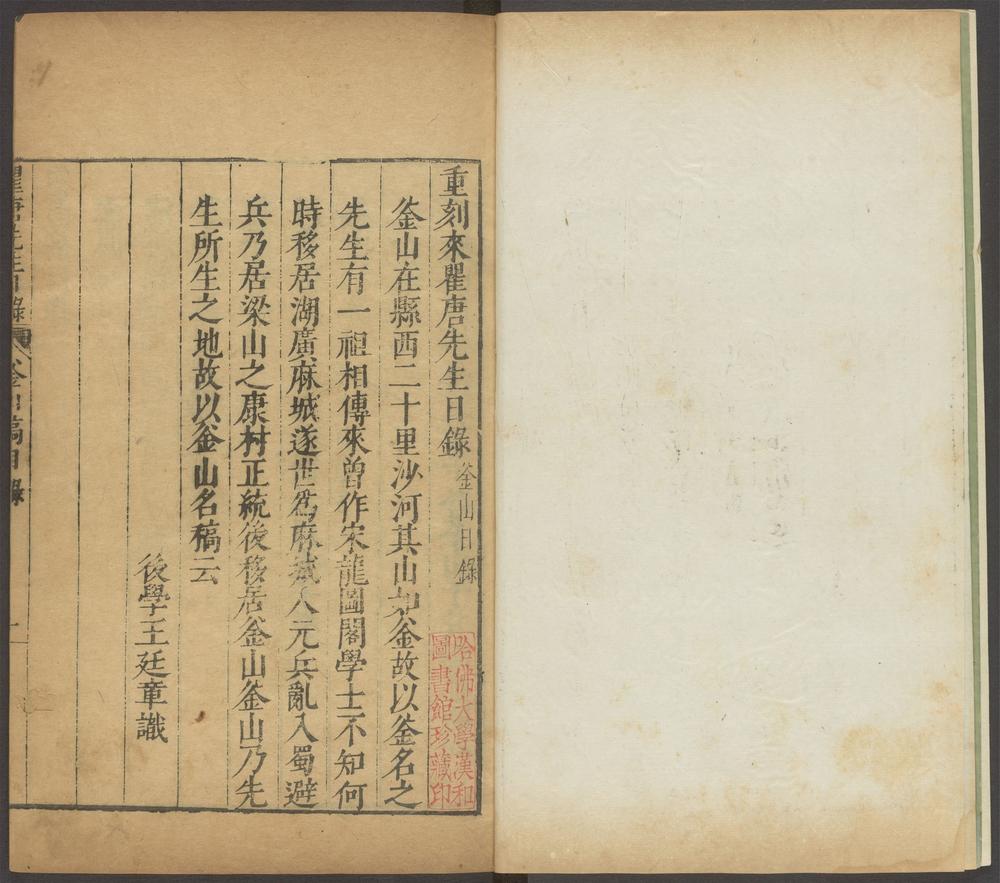 重刻來瞿唐先生日錄 釜山日錄
釜山在縣西二十里沙河其山如釜故以釜名之
先生有一祖相傳來曾作宋龍圖閣學士不知何
時移居湖廣麻城遂世爲麻城人元兵亂入蜀避
兵乃居梁山之康村正統後移居釜山釜山乃先
生所生之地故以釜山名稿云
後學王廷章識
瞿唐先生日錄 釜山稿目錄 一
哈佛大學漢和
圖書館珍藏印